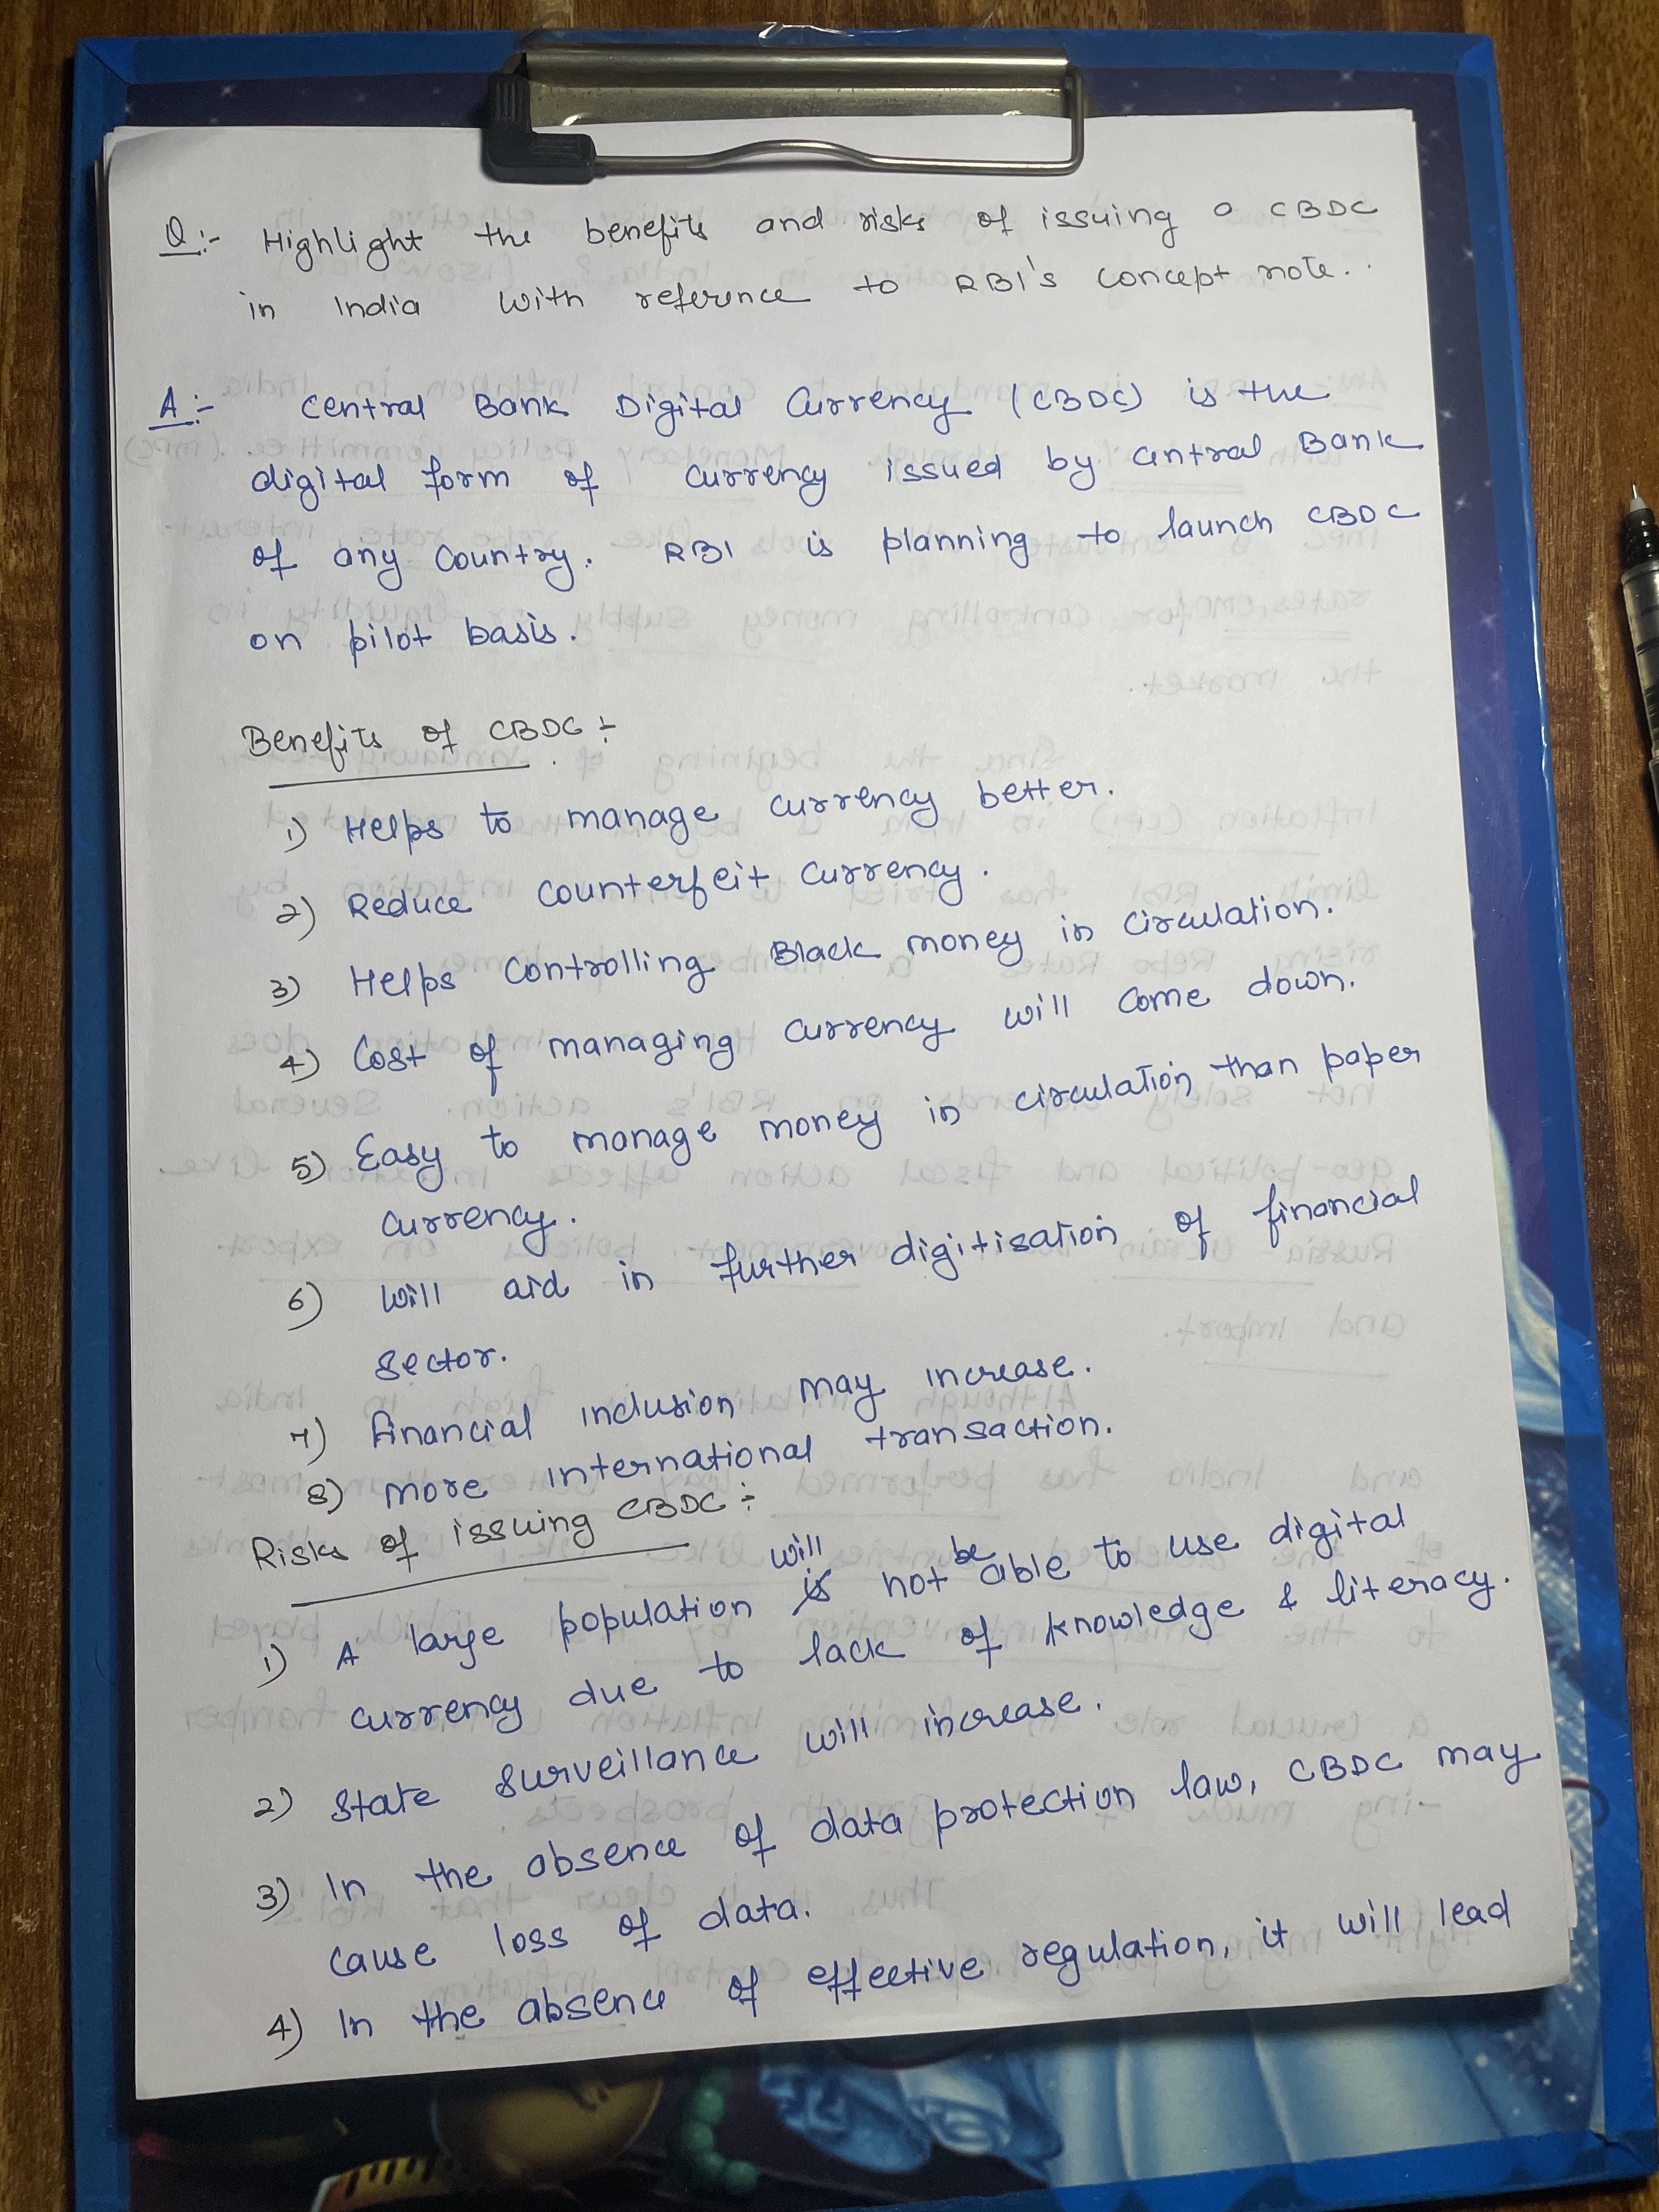 Q:- Highlight the benefits and risks of issuing a CBDC
in India with reference to RBI's concept note..
A:- Central Bank Digital Currency (CBDC) is the
digital form of currency issued by central Bank
of any country. RBI is planning to launch CBDC
on pilot basis.
Benefits of CBDC :-
1) Helps to manage currency better.
2) Reduce counterfeit currency.
3) Helps controlling Black money in circulation.
4) Cost of managing currency will come down.
5) Easy to manage money in circulation than paper
currency.
6) Will aid in further digitisation of financial
sector.
7) Financial inclusion may increase.
8) More international transaction.
Risks of issuing CBDC :-
1) A large population will not be able to use digital
currency due to lack of knowledge & literacy.
2) State surveillance will increase.
3) In the absence of data protection law, CBDC may
cause loss of data.
4) In the absence of effective regulation, it will lead